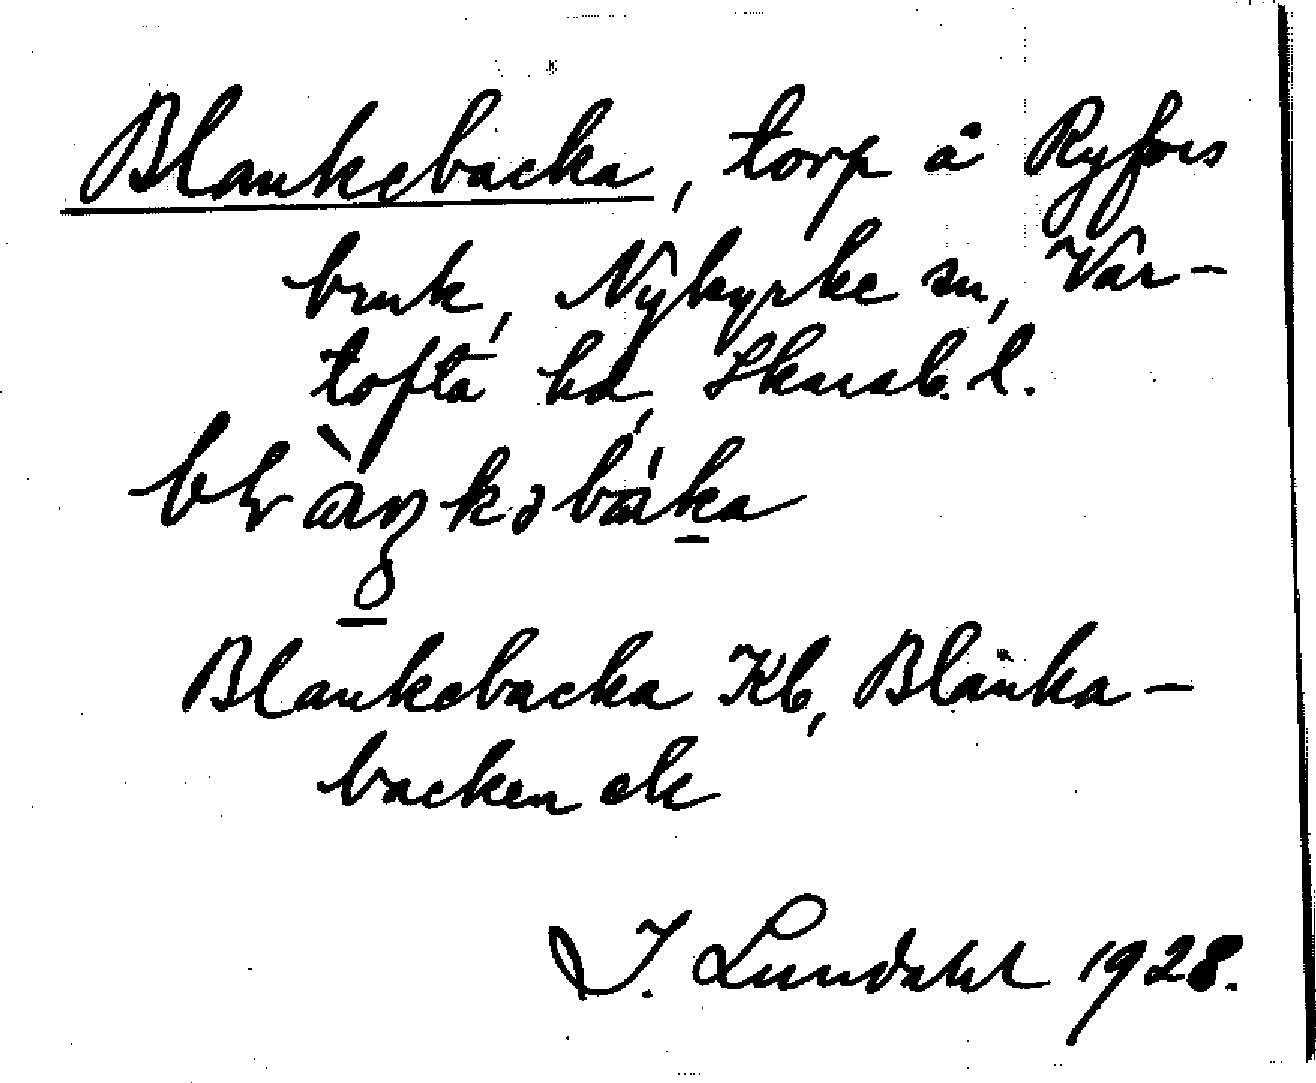 Blankebacka, torp å Ryfors
bruk, Nykyrke sn, Var-
tofta hd, Skarab. l.
Blankebacka Kb, Blanka-
backen ek
I. Lundahl 1928.